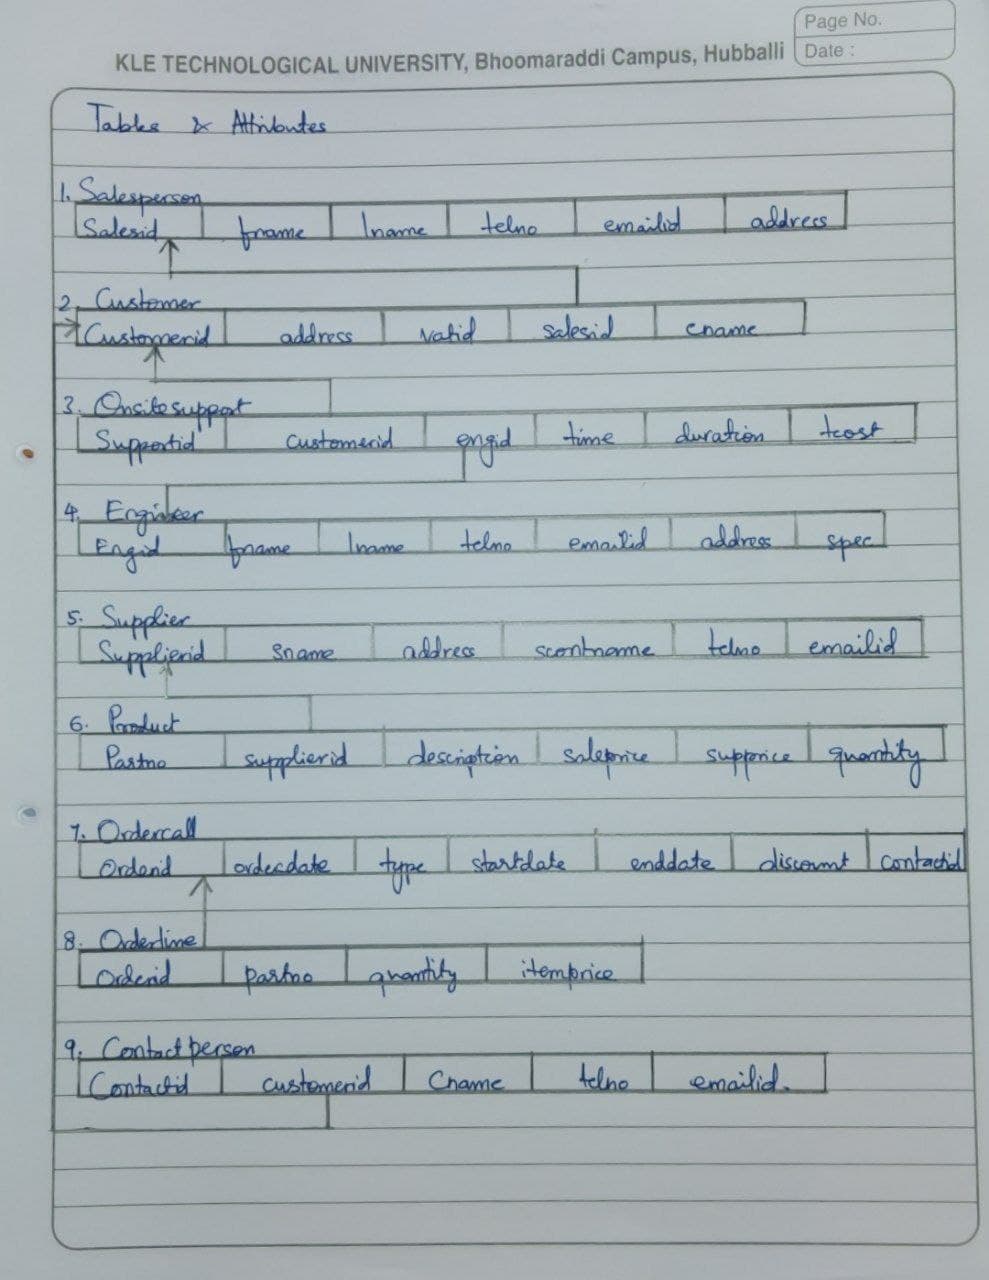 Page No.
Date :
KLE TECHNOLOGICAL UNIVERSITY, Bhoomaraddi Campus, Hubballi
Tables & Attributes
1. Salesperson
Salesid fname lname telno emailid address
2. Customer
Customerid address vatid salesid cname
3. Onsite support
Supportid customerid engid time duration tcost
4. Engineer
Engid fname lname telno emailid address spec
5. Supplier
Supplierid sname address scontname telno emailid
6. Product
Partno supplierid description saleprice supprice quantity
7. Ordercall
Orderid orderdate type startdate enddate discount contactid
8. Orderline
Orderid partno quantity itemprice
9. Contact person
Contactid customerid Cname telno emailid.